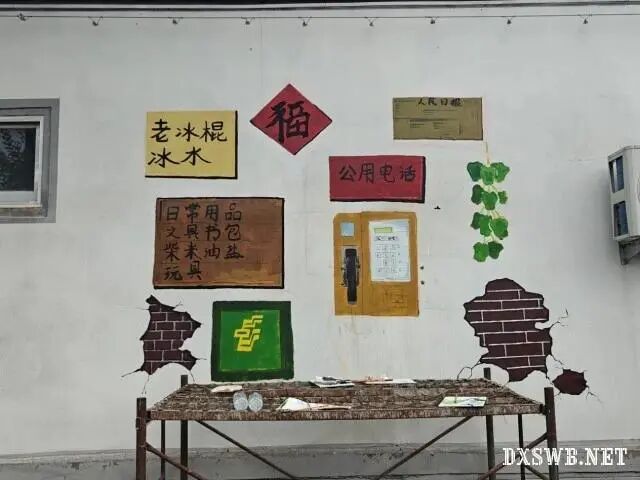 福
人民日报
老冰棍
冰水
公用电话
日常用品
文具书包
柴米油盐
玩具
DXSWB.NET